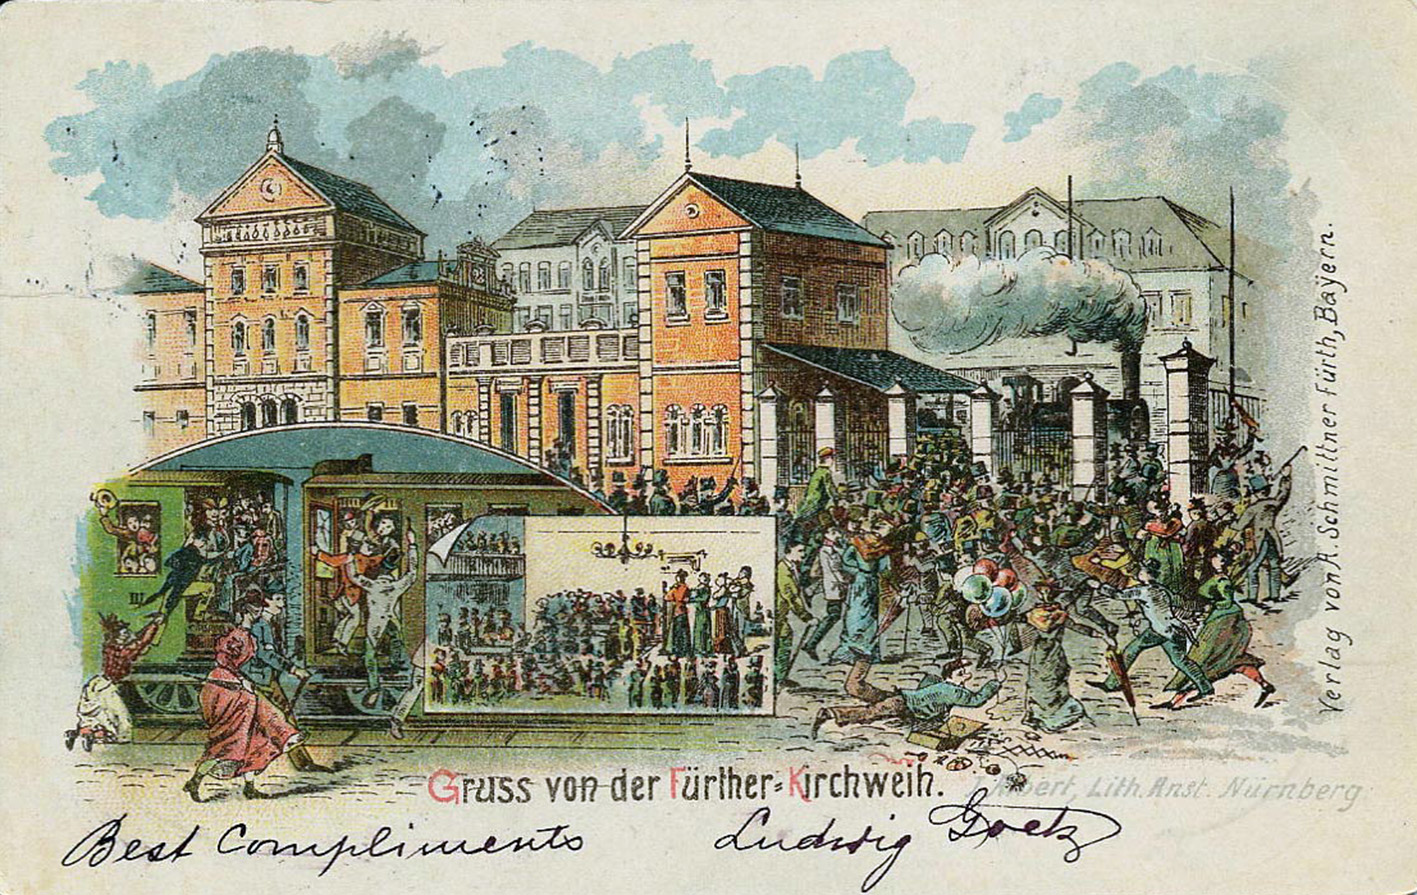 III
Gruss von der Fürther-Kirchweih.
Verlag von A. Schmittner Fürth, Bayern.
Lith. Anst. Nürnberg
Best Compliments
Ludwig Goetz